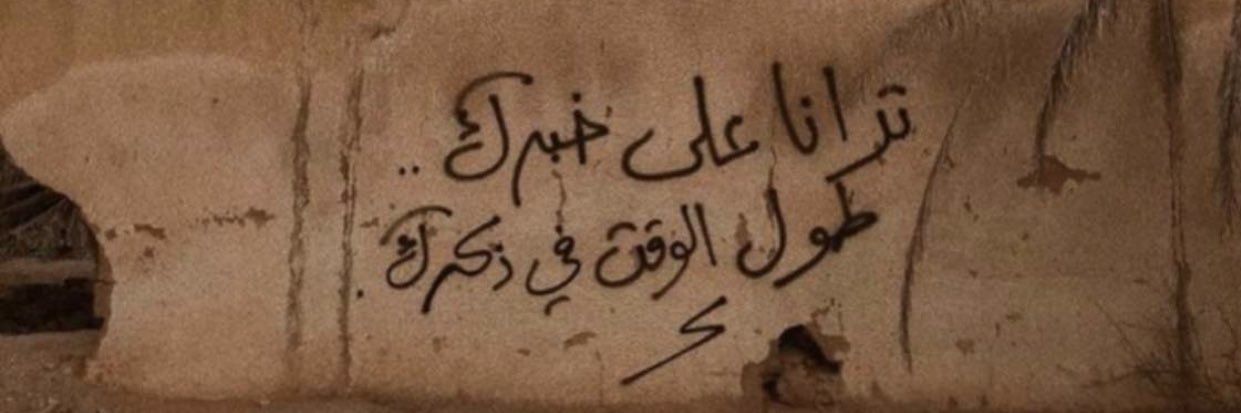 ترا انا على خبرك ..
طول الوقت في ذكرك .